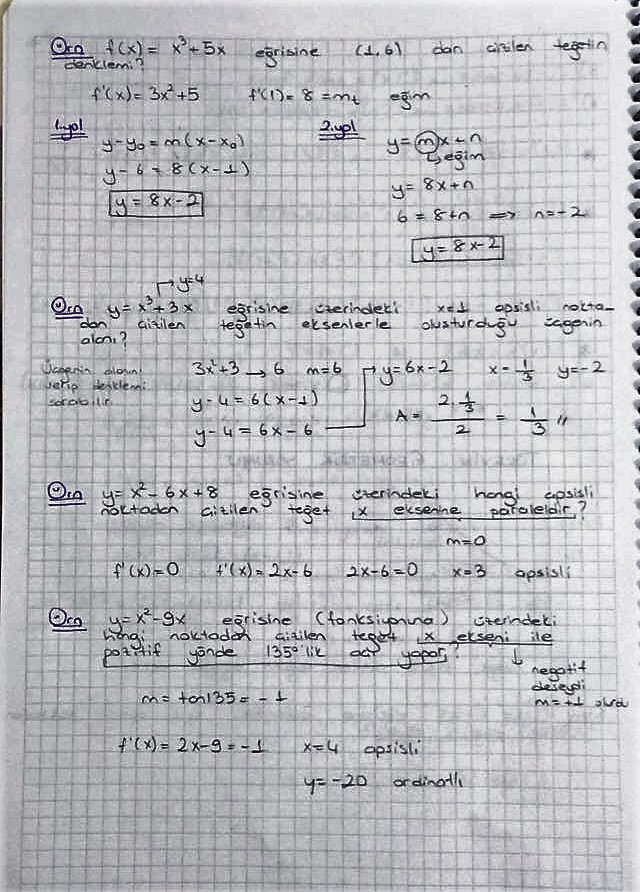 Örn f(x) = x³+5x eğrisine (1,6) dan çizilen teğetin
denklemi?
f'(x) = 3x²+5 f'(1) = 8 = mₜ eğim
1.yol
y-y₀ = m(x-x₀)
y-6 = 8(x-1)
y = 8x-2
2.yol
y = mx+n
↳ eğim
y = 8x+n
6 = 8+n ⟹ n=-2
y = 8x-2
→ y=4
Örn y = x³+3x eğrisine üzerindeki x=1 apsisli nokta-
dan çizilen teğetin eksenlerle oluşturduğu üçgenin
alanı?
Üçgenin alanını
verip denklemi
sorabilir
3x²+3 → 6 m=6
y-4 = 6(x-1)
y-4 = 6x-6
→ y=6x-2 x=1/3 y=-2
A = 2.1/3 / 2 = 1/3 //
Örn y = x²-6x+8 eğrisine üzerindeki hangi apsisli
noktadan çizilen teğet x eksenine paraleldir?
m=0
f'(x)=0 f'(x)=2x-6 2x-6=0 x=3 apsisli
Örn y = x²-9x eğrisine (fonksiyonuna) üzerindeki
hangi noktadan çizilen teğet x ekseni ile
pozitif yönde 135°'lik açı yapar?
↓
negatif
deseydi
m=+1 olurdu
m = tan135 = -1
f'(x) = 2x-9 = -1 x=4 apsisli
y=-20 ordinatlı